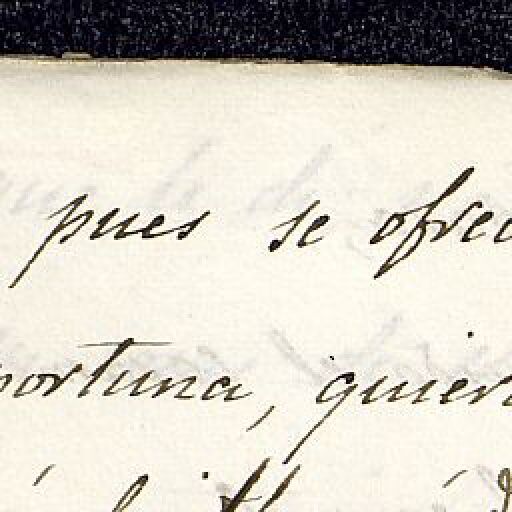 pues se ofrec
portuna, quier